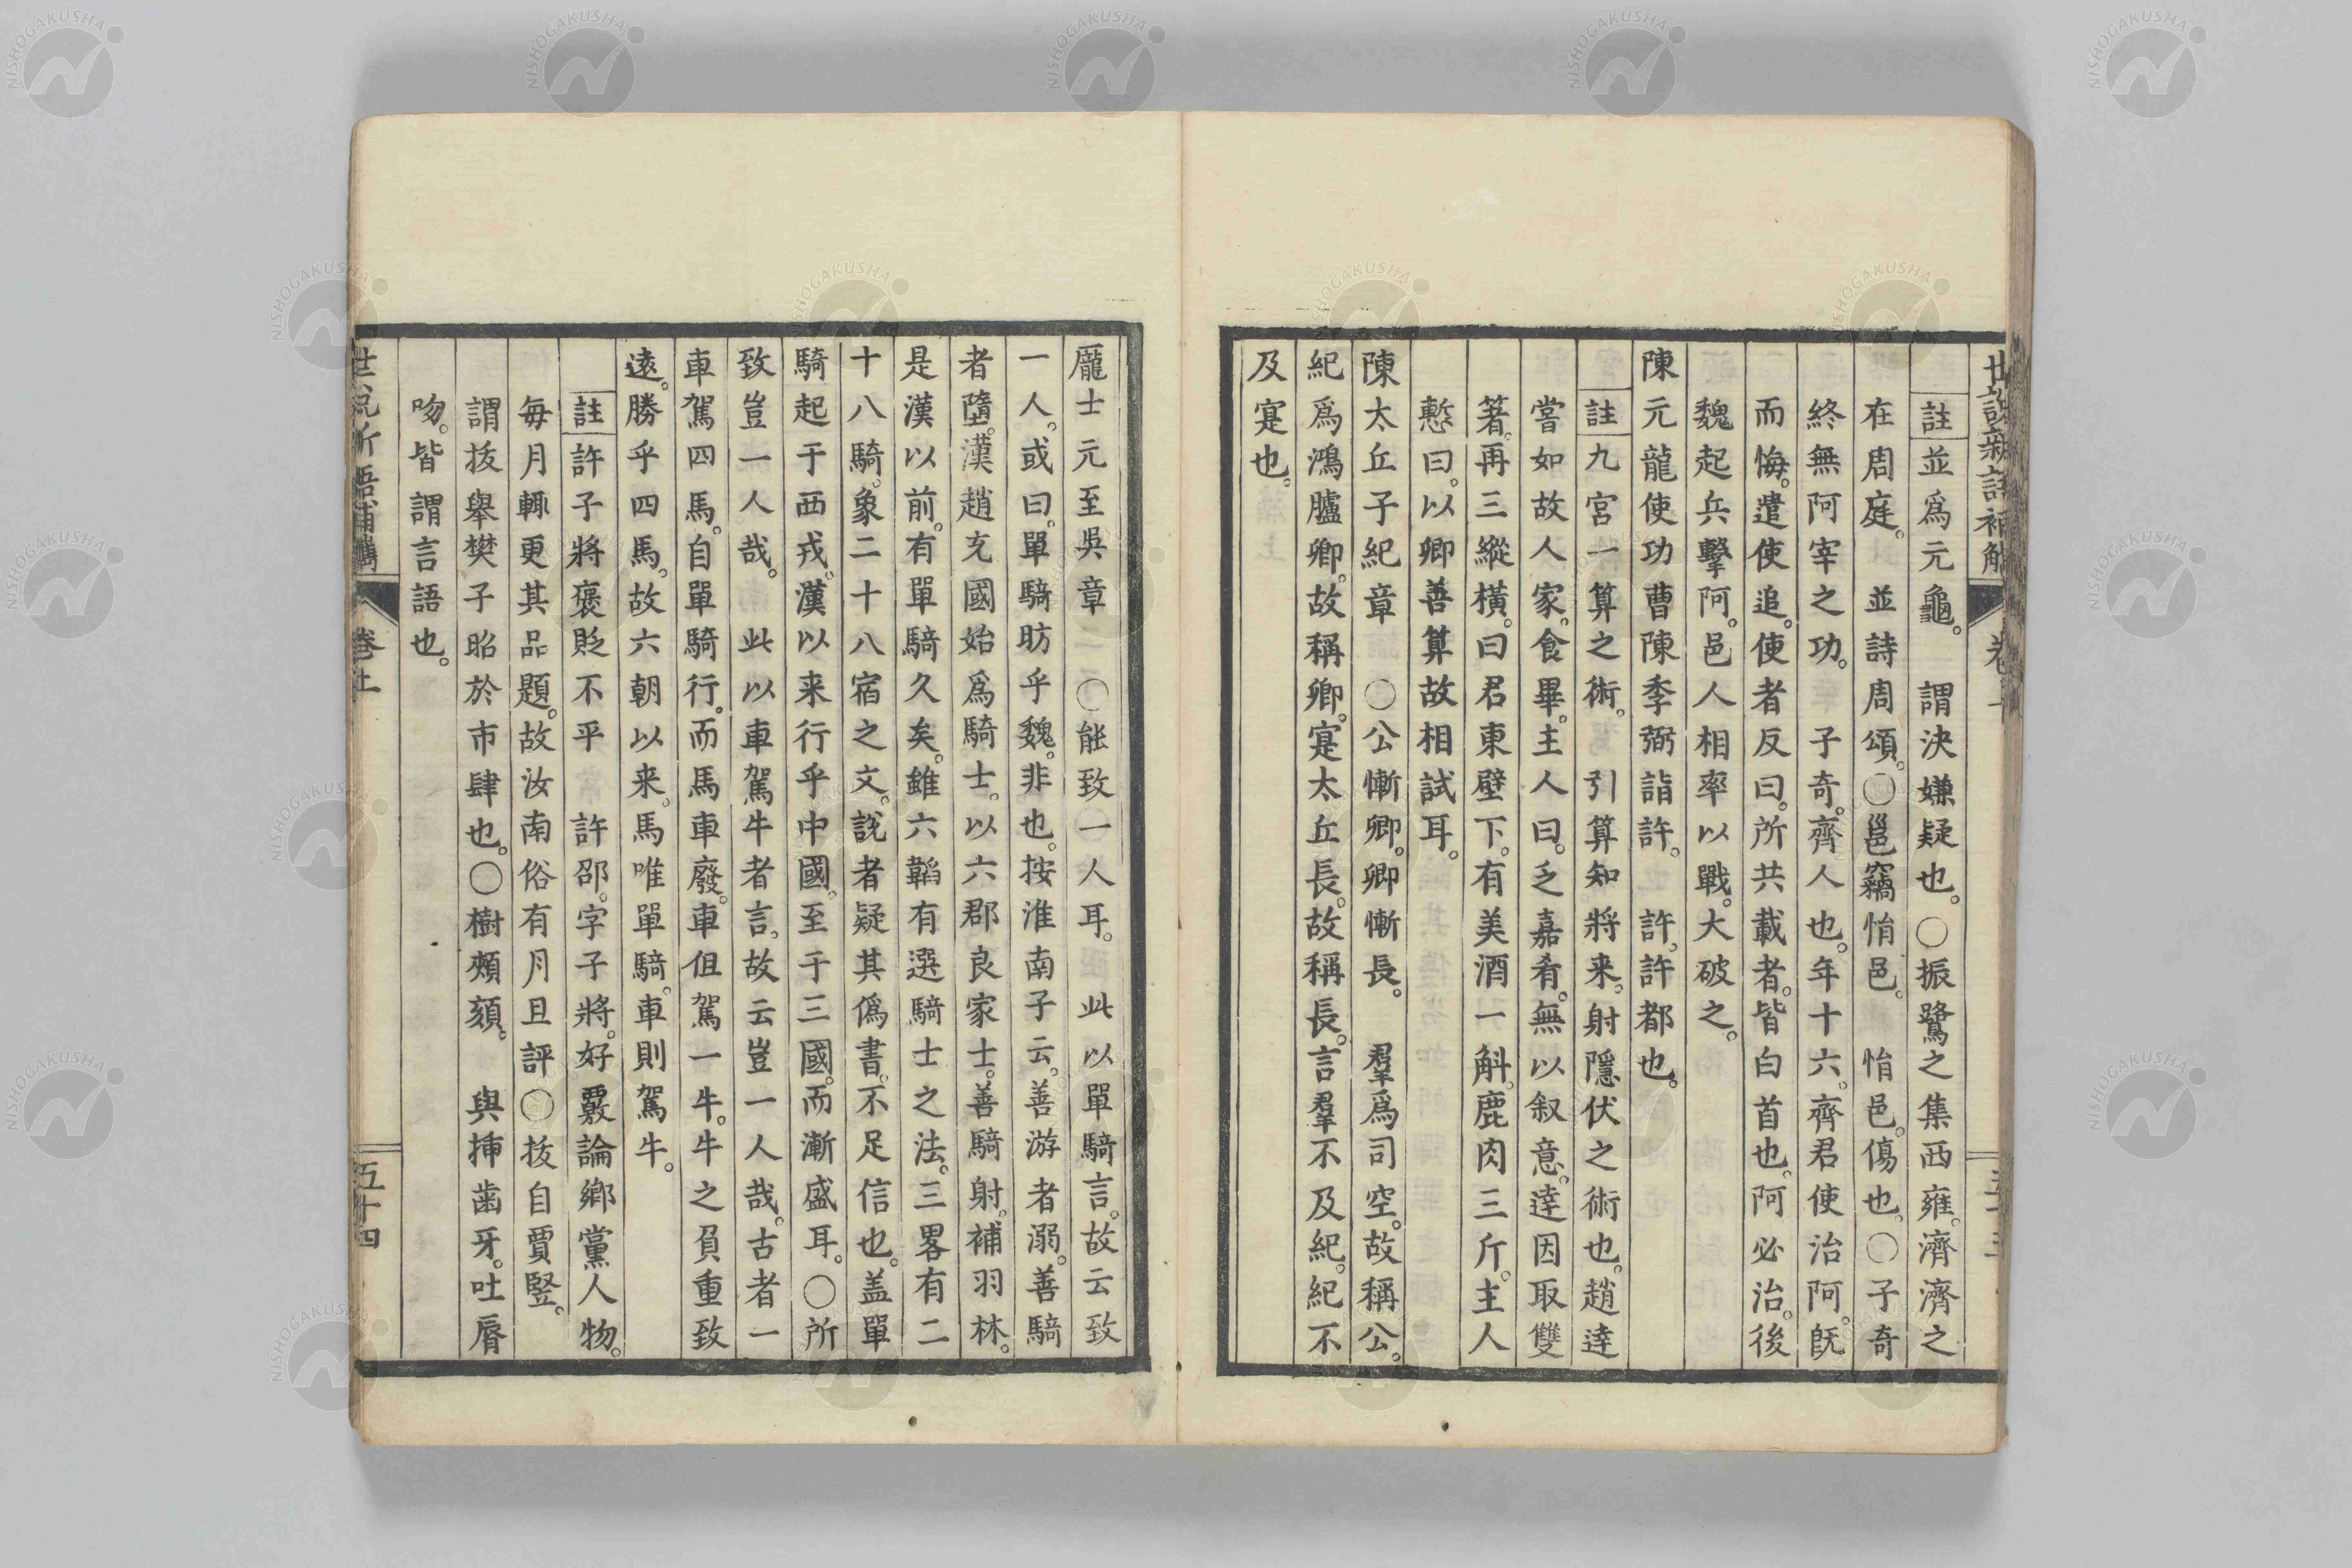 註並爲元龜。　謂決嫌疑也。○振鷺之集西雍。濟濟之
在周庭。　並詩周頌。○邕竊悁邑。　悁邑。傷也。○子奇
終無阿宰之功。　子奇。齊人也。年十六。齊君使治阿。旣
而悔。遣使追。使者反曰。所共載者。皆白首也。阿必治。後
魏起兵擊阿。邑人相率以戰。大破之。
陳元龍使功曹陳季弼詣許。　許。許都也。
註九宮一算之術。　引算知將来。射隱伏之術也。趙逹
嘗如故人家。食畢。主人曰。乏嘉肴。無以叙意。逹因取雙
箸。再三縱橫。曰君東壁下。有美酒一斛。鹿肉三斤。主人
慙曰。以卿善算故相試耳。
陳太丘子紀章　○公慚卿。卿慚長。　羣爲司空。故稱公。
紀爲鴻臚卿。故稱卿。寔太丘長。故稱長。言羣不及紀。紀不
及寔也。
龐士元至吳章　○能致一人耳。　此以單騎言。故云致
一人。或曰。單騎昉乎魏。非也。按淮南子云。善游者溺。善騎
者墮。漢趙充國始爲騎士。以六郡良家士。善騎射。補羽林。
是漢以前。有單騎久矣。雖六韜有選騎士之法。三畧有二
十八騎。象二十八宿之文。說者疑其僞書。不足信也。盖單
騎起于西戎。漢以来行乎中國。至于三國。而漸盛耳。○所
致豈一人哉。　此以車駕牛者言。故云豈一人哉。古者一
車駕四馬。自單騎行。而馬車廢。車但駕一牛。牛之負重致
遠。勝乎四馬。故六朝以来。馬唯單騎。車則駕牛。
註許子將褒貶不平　許邵。字子將。好覈論鄉黨人物。
每月輒更其品題。故汝南俗有月旦評○拔自賈豎。
謂拔舉樊子昭於市肆也。○樹頰頦。　與挿齒牙。吐脣
吻。皆謂言語也。
卷上
五十四